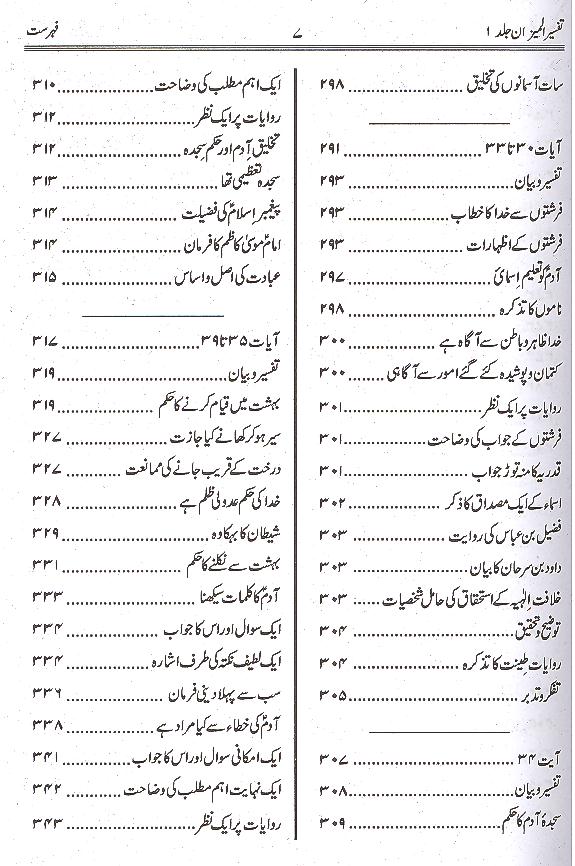 تفسیر المیزان جلد ۱ ۷ فہرست
سات آسمانوں کی تخلیق ۲۹۸
آیات ۳۰ تا ۳۳ ۲۹۱
تفسیر و بیان ۲۹۳
فرشتوں سے خدا کا خطاب ۲۹۳
فرشتوں کے اظہارات ۲۹۳
آدمؑ کو تعلیم اسمائ ۲۹۷
ناموں کا تذکرہ ۲۹۸
خدا ظاہر و باطن سے آگاہ ہے ۳۰۰
کتمان و پوشیدہ کئے گئے امور سے آگاہی ۳۰۰
روایات پر ایک نظر ۳۰۱
فرشتوں کے جواب کی وضاحت ۳۰۱
قدریہ کا منہ توڑ جواب ۳۰۱
اسماء کے ایک مصداق کا ذکر ۳۰۲
فضیل بن عباس کی روایت ۳۰۳
داود بن سرحان کا بیان ۳۰۳
خلافت الٰہیہ کے استحقاق کی حامل شخصیات ۳۰۳
توضیح و تحقیق ۳۰۴
روایات طینت کا تذکرہ ۳۰۴
تفکر و تدبر ۳۰۵
آیت ۳۴ ۳۰۷
تفسیر و بیان ۳۰۸
سجدۂ آدم کا حکم ۳۰۹
ایک اہم مطلب کی وضاحت ۳۱۰
روایات پر ایک نظر ۳۱۲
تخلیق آدم اور حکم سجدہ ۳۱۲
سجدہ تعظیمی تھا ۳۱۳
پیغمبر اسلامؐ کی فضیلت ۳۱۴
امام موسیٰ کاظمؑ کا فرمان ۳۱۴
عبادت کی اصل و اساس ۳۱۵
آیات ۳۵ تا ۳۹ ۳۱۷
تفسیر و بیان ۳۱۹
بہشت میں قیام کرنے کا حکم ۳۱۹
سیر ہو کر کھانے کیا جازت ۳۲۷
درخت کے قریب جانے کی ممانعت ۳۲۷
خدا کی حکم عدولی ظلم ہے ۳۲۸
شیطان کا بہکاوہ ۳۲۹
بہشت سے نکلنے کا حکم ۳۳۱
آدمؑ کا کلمات سیکھنا ۳۳۳
ایک سوال اور اس کا جواب ۳۳۴
ایک لطیف نکتہ کی طرف اشارہ ۳۳۴
سب سے پہلا دینی فرمان ۳۳۶
آدمؑ کی خطاء سے کیا مراد ہے ۳۳۸
ایک امکانی سوال اور اس کا جواب ۳۴۱
ایک نہایت اہم مطلب کی وضاحت ۳۴۲
روایات پر ایک نظر ۳۴۳